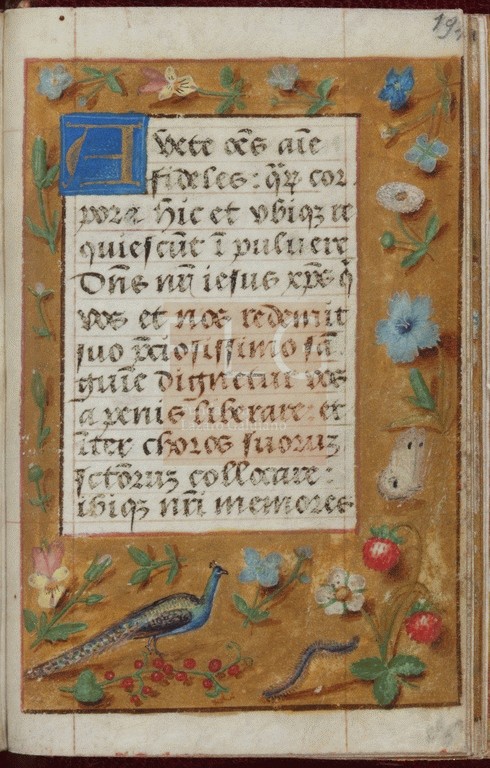 Avete oēs aīe
fideles: qr̄ꝝ cor
pora hic et vbiqꝫ re
quiescūt ī puluere
Dn̄s nr̄ iesus xp̄s q̄
vos et nos redemit
suo p̄ciosissimo sā
guīe dignetur vos
a penis liberare: et
īter choros suoruꝫ
sctōruꝫ collocare:
ibiqꝫ nr̄i memores